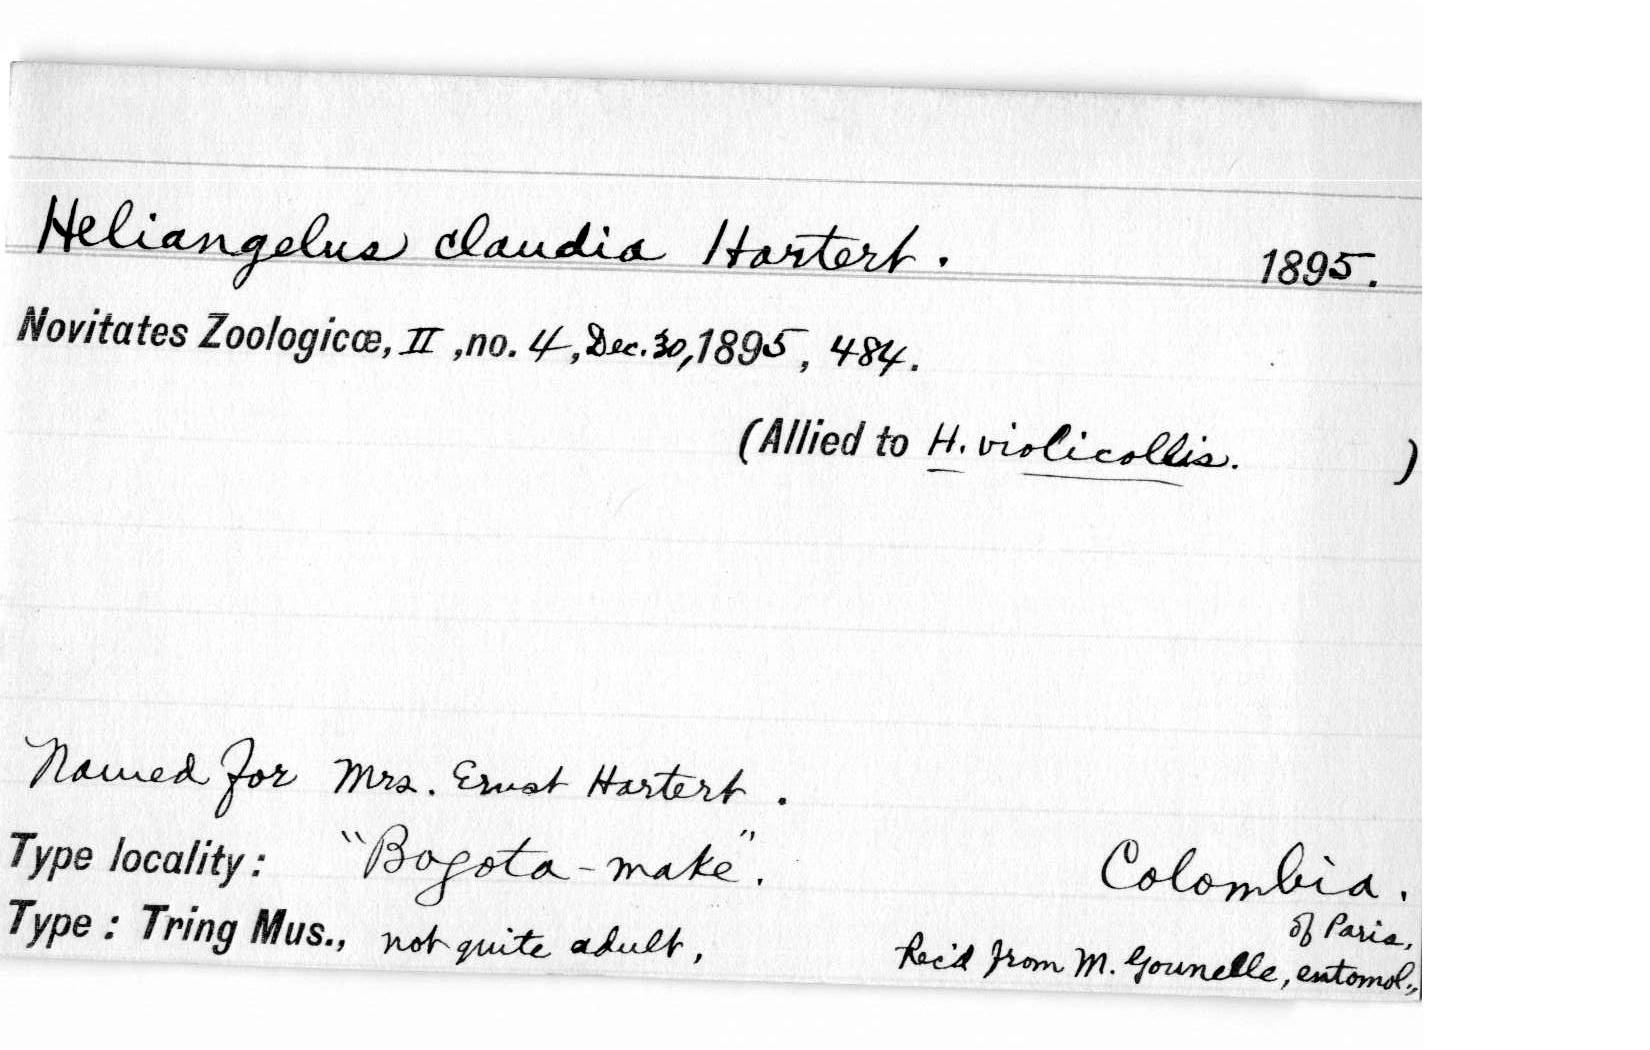 Heliangelus claudia Hartert. 1895.
Novitates Zoologicæ, II, no. 4, Dec. 30, 1895, 484.
(Allied to H. violicollis. )
Named for Mrs. Ernst Hartert.
Type locality: "Bogota-make". Colombia.
Type: Tring Mus., not quite adult, Rec'd from M. Gounelle, entomol., of Paris.